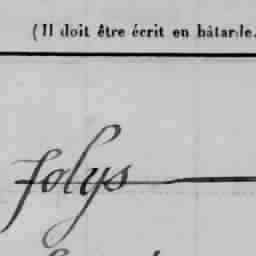 (Il doit être écrit en bâtarde.
Jolys